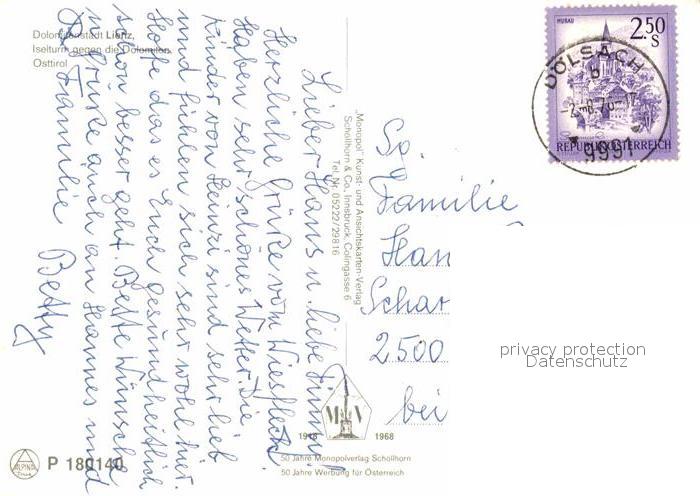 Dolomitenstadt Lienz,
Iselturm gegen die Dolomiten
Osttirol
Lieber Hans u. liebe
Herzliche Grüße vom
Haben sehr schönes Wetter. Die
Kinder von Heinzi sind sehr lieb
und fühlen sich sehr wohl hier.
Hoffe das es Euch gesundheitlich
schon besser geht. Beste Wünsche
u. Grüße auch an Hannes und
Familie Betty
"Monopol" Kunst- und Ansichtskarten-Verlag
Schöllhorn & Co., Innsbruck, Colingasse 6
Tel. Nr. 05222/29816
MURAU
2.50
S
REPUBLIK ÖSTERREICH
DÖLSACH
b
9991
Familie
Han
Schar
2500
bei
privacy protection
Datenschutz
M V
1918 1968
50 Jahre Monopolverlag Schöllhorn
50 Jahre Werbung für Österreich
ALPINA
P 180140